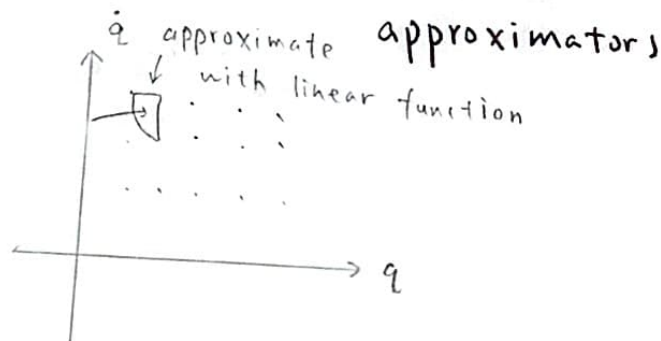 q̇ approximate approximators
with linear function
q